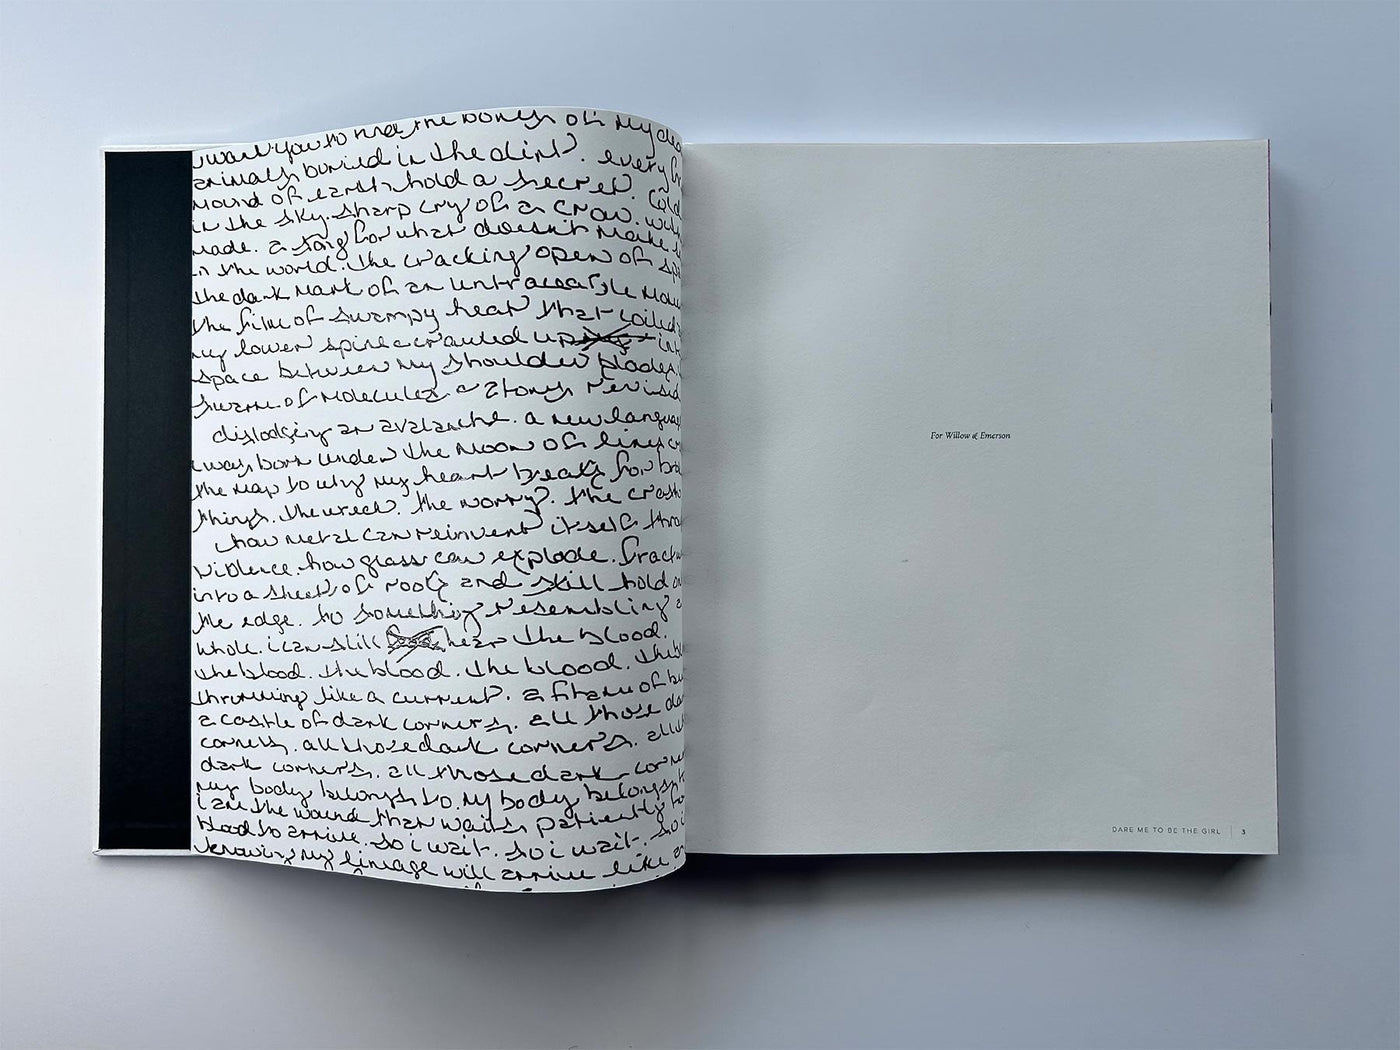 i want you to find the bones of my dead
animals buried in the dirt. every
mound of earth hold a secret. cold
in the sky. sharp cry of a crow.
made. a song for what doesn't make
in the world. the cracking open of
the dark mark of an untraceable
the film of swampy heat that coiled
my lower spine & crawled up
space between my shoulder blades.
swarm of molecules. a story revised
dislodging an avalanche. a new language
i was born under the moon of
the map to why my heart breaks for
things. the wreck. the worry. the crash
how metal can reinvent itself
violence. how glass can explode.
into a sheet of roots and still hold
the edge. to something resembling a
whole. i can still hear the blood.
the blood. the blood. the blood.
thrumming like a current. a
a castle of dark corners. all those
corners. all those dark corners. all
dark corners. all those dark
my body belongs to. my body belongs
i am the wound that waits patiently for
blood to arrive. so i wait. so i wait. so i
knowing my lineage will arrive like
For Willow & Emerson
DARE ME TO BE THE GIRL | 3